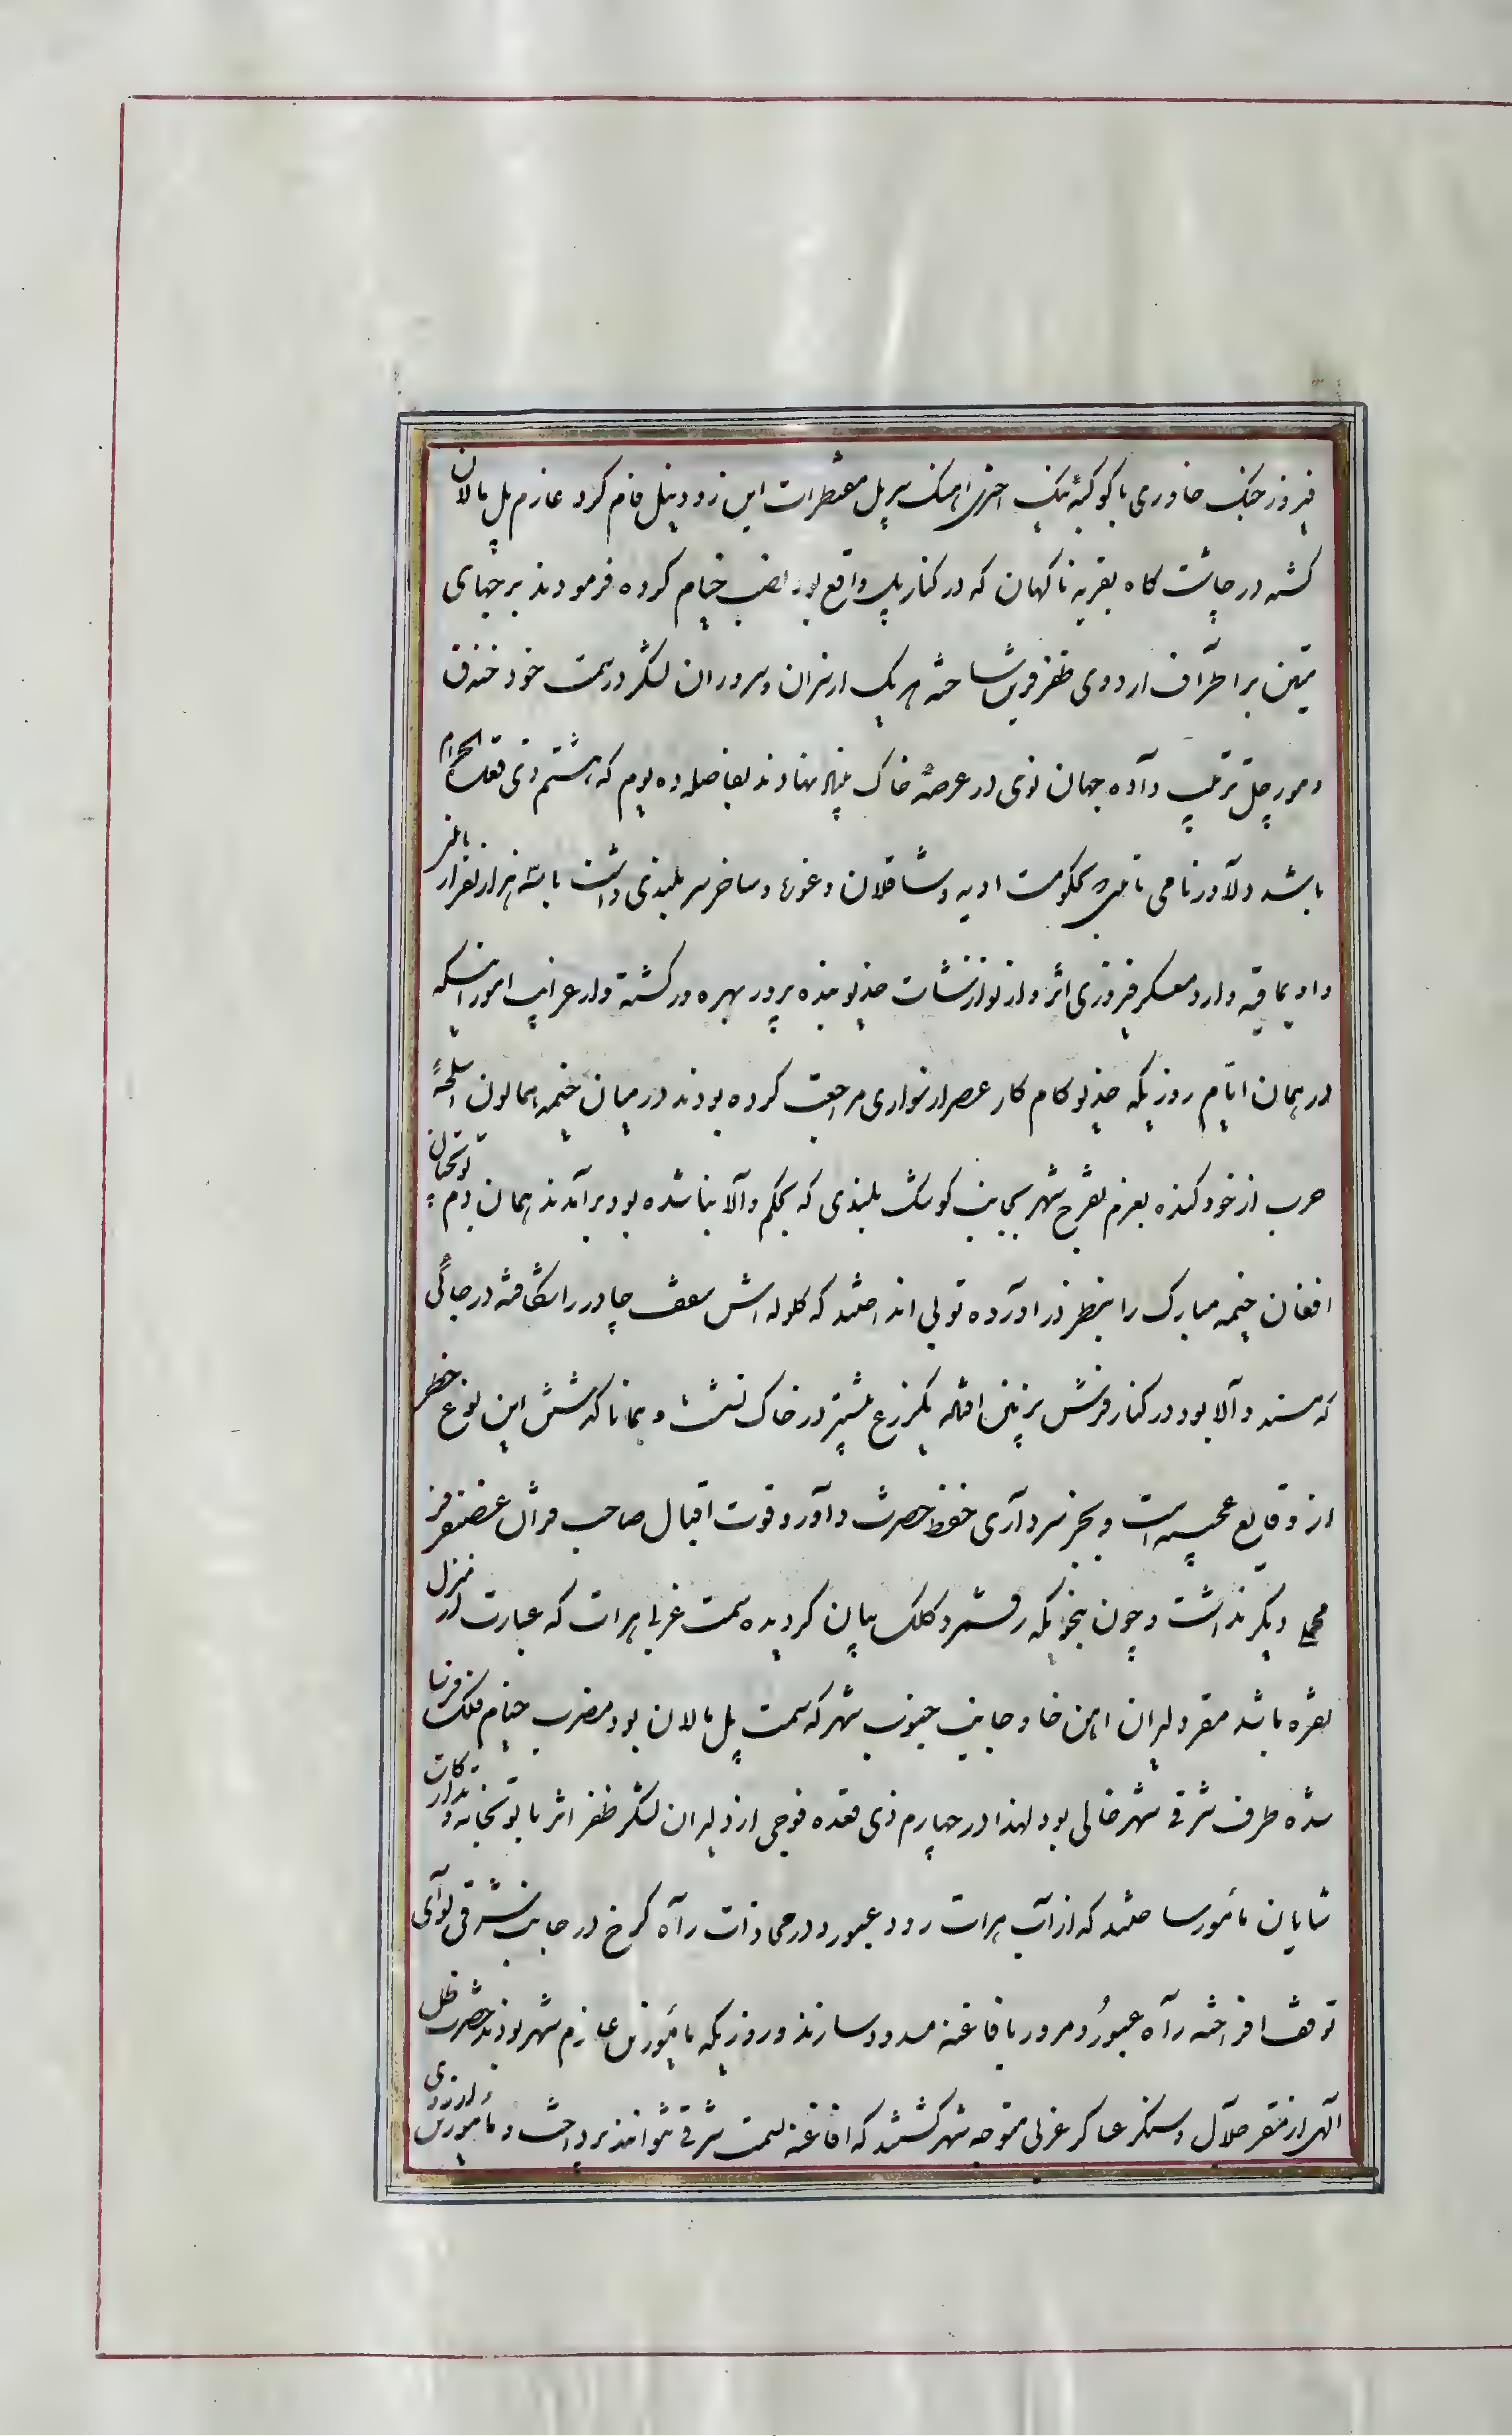 فیروز جنک خاوری با کوکبهٔ نیک اختری آهنک سر پل مقنطرات این رود نیل فام کرد عازم پل مالان
کشته در چاشت کاه بقریه ناکهان که در کنار پل واقع بود نصب خیام کرده فرمودند برجهای
متین بر اطراف اردوی ظفر قرین ساخته هر یک از سران و سروران لشکر در سمت خود خندق
و مورچل ترتیب داده جهان نوی در عرصهٔ خاک بنیاد نهادند بفاصله ده یوم که هشتم ذی قعدة الحرام
باشد دلاور نامی تایمنی که بحکومت اوبه و شاقلان و غور و ساخر سر بلندی داشت با سه هزار نفر از تایمنی
و اویماقیه وارد معسکر فیروزی اثر و از نوازشات خدیو بنده پرور بهره ور کشته و از غرایب امور اینکه
در همان ایام روزیکه خدیو کامکار عصر از سواری مراجعت کرده بودند در میان خیمه همایون اسلحهٔ
حرب از خود کنده بعزم تفرج شهر بجانب کوشک بلندی که بحکم والا بنا شده بود برآمدند همان دم توپچیان
افغان خیمه مبارک را بنظر در آورده توپی انداختند که کلوله اش سقف چادر را شکافته در جائی
که مسند والا بود در کنار فرش بر زمین افتاده یکذرع بیشتر در خاک نشست و همانا که شش این نوع خطر
از وقایع عجیبه است و بجز سرداری حفظ حضرت داور و قوت اقبال صاحب قران غضنفر فر
محملی دیکر نداشت و چون بنحویکه رقمزد کلک بیان کردیده سمت غربی هرات که عبارت از منزل
نقره باشد مقر دلیران آهن خا و جانب جنوب شهر که سمت پل مالان بود مضرب خیام فلک فرسا
شده طرف شرقی شهر خالی بود لهذا در چهارم ذی قعده فوجی از دلیران لشکر ظفر اثر با توپخانه و تدارکات
شایان مامور ساختند که از آب هرات رود عبور و در محاذات راه کرخ در جانب شرقی لوای
توقف افراخته راه عبور و مرور بافاغنه مسدود سازند و روزیکه مامورین عازم شهر بودند حضرت ظل
الهی از مقر جلال و سنکر عساکر غربی متوجه شهر کشتند که افاغنه بسمت شرقی نتوانند پرداخت و مامورین اردوی